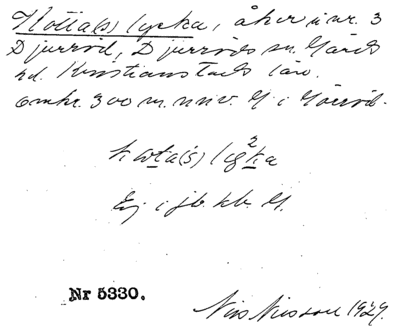 Kötta(s) lycka, åker i nr. 3
Djurröd, Djurröds sn. Gärds
hd. Kristianstads län.
omkr. 300 m. nnv. G. i
(s)
Ej i jb. kb. G.
Nr 5330.
Nils Nilsson 1929.